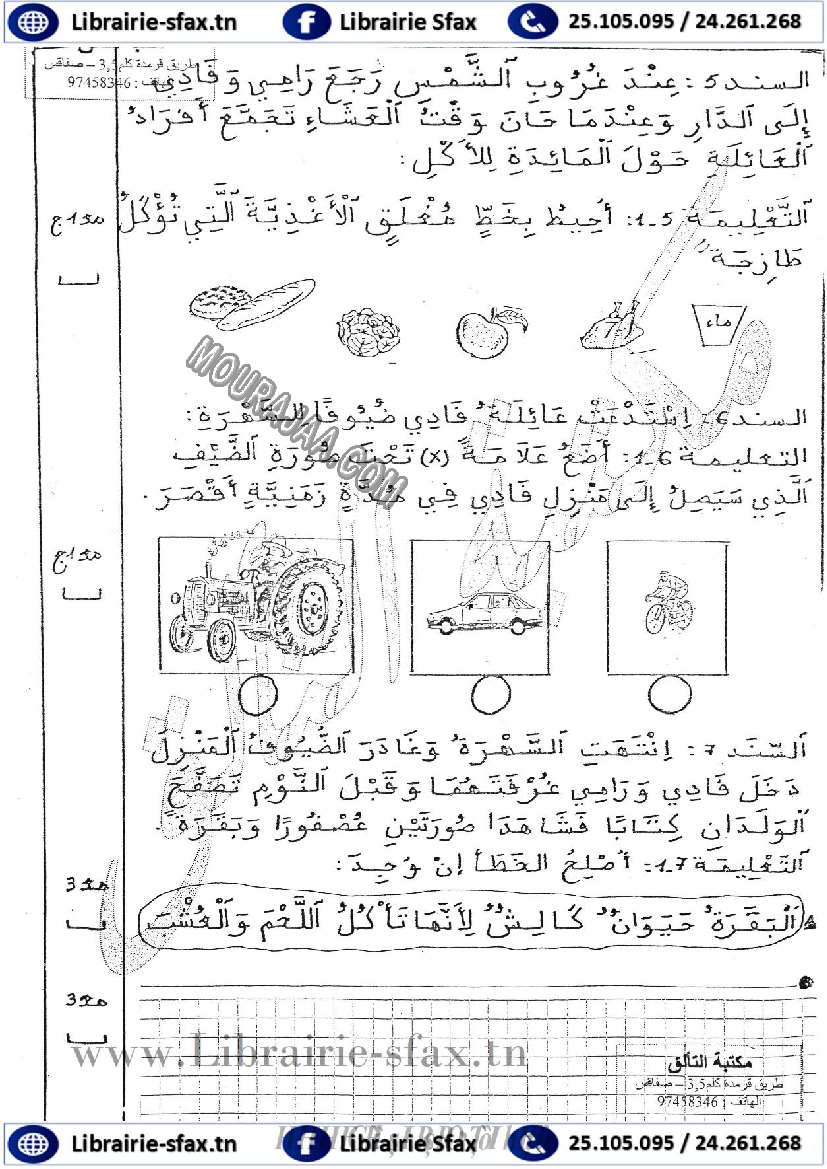 Librairie-sfax.tn Librairie Sfax 25.105.095 / 24.261.268
طريق قرمدة كلم3,5 – صفاقس
الهاتف : 97458346
السند5: عِنْدَ غُرُوبِ الشَّمْسِ رَجَعَ رَامِي وَ فَادِي
إِلَى الدَّارِ وَعِنْدَمَا حَانَ وَقْتُ الْعَشَاءِ تَجَمَّعَ أَفْرَادُ
الْعَائِلَةِ حَوْلَ الْمَائِدَةِ لِلأَكْلِ:
التَّعْلِيمة 5-1: أُحِيطُ بِخَطٍّ مُغْلَقٍ الْأَغْذِيَّةَ الَّتِي تُؤْكَلُ
طَازِجَة
مع1ج
ماء
MOURAJAA.COM
السند6: اِسْتَدْعَتْ عَائِلَةُ فَادِي ضُيُوفًا لِلسَّهْرَةِ:
التعليمة 6-1: أَضَعُ عَلَامَةً (x) تَحْتَ صُورَةِ الضَّيْفِ
الَّذِي سَيَصِلُ إِلَى مَنْزِلِ فَادِي فِي مُدَّةٍ زَمَنِيَّةٍ أَقْصَرَ.
مع1ج
السّنَد 7: اِنْتَهَتِ السَّهْرَةُ وَغَادَرَ الضُّيُوفُ الْمَنْزِلَ
دَخَلَ فَادِي وَرَامِي غُرْفَتَهُمَا وَقَبْلَ النَّوْمِ تَصَفَّحَ
الوَلَدَانِ كِتَابًا فَشَاهَدَا صُورَتَيْنِ عُصْفُورًا وَبَقَرَةً.
التَّعْلِيمَة 7-1: أُصْلِحُ الخَطَأَ إِنْ وُجِدَ:
مع3
الْبَقَرَةُ حَيَوَانٌ كَالِشٌ لِأَنَّهَا تَأْكُلُ اللَّحْمَ وَالْعُشْبَ
مع3
www.Librairie-sfax.tn
مكتبة التألق
طريق قرمدة كلم3,5 – صفاقس
الهاتف : 97458346
Librairie-sfax.tn Librairie Sfax 25.105.095 / 24.261.268